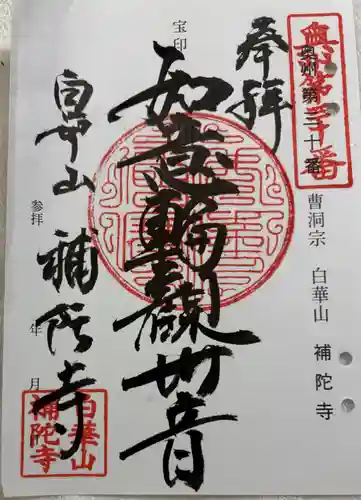 奥州第三十番
奥州第三十番
曹洞宗 白華山 補陀寺
奉拝
宝印
如意輪観世音
白華山 補陀寺
参拝 年 月
白華山
補陀寺